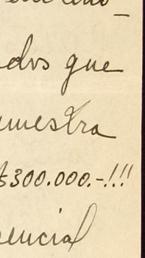 dos que
muestra
$300.000.-!!!
encial